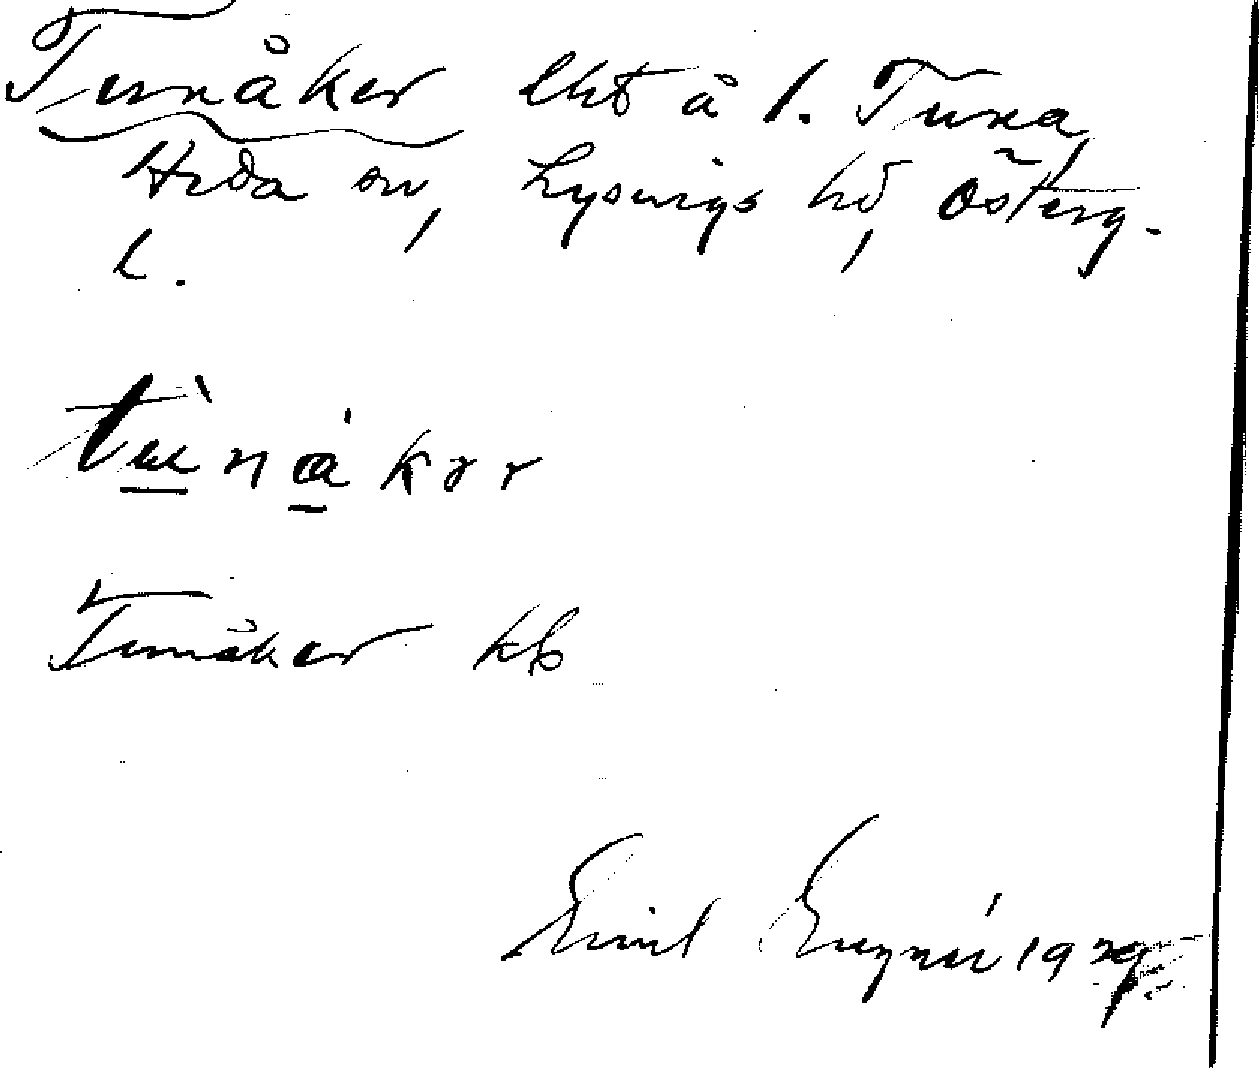 Tunåker lht å l. Tuna
Heda sn, Lysings hd, Österg.
l.
tùnákər
Tunåker kb
Emil 1929